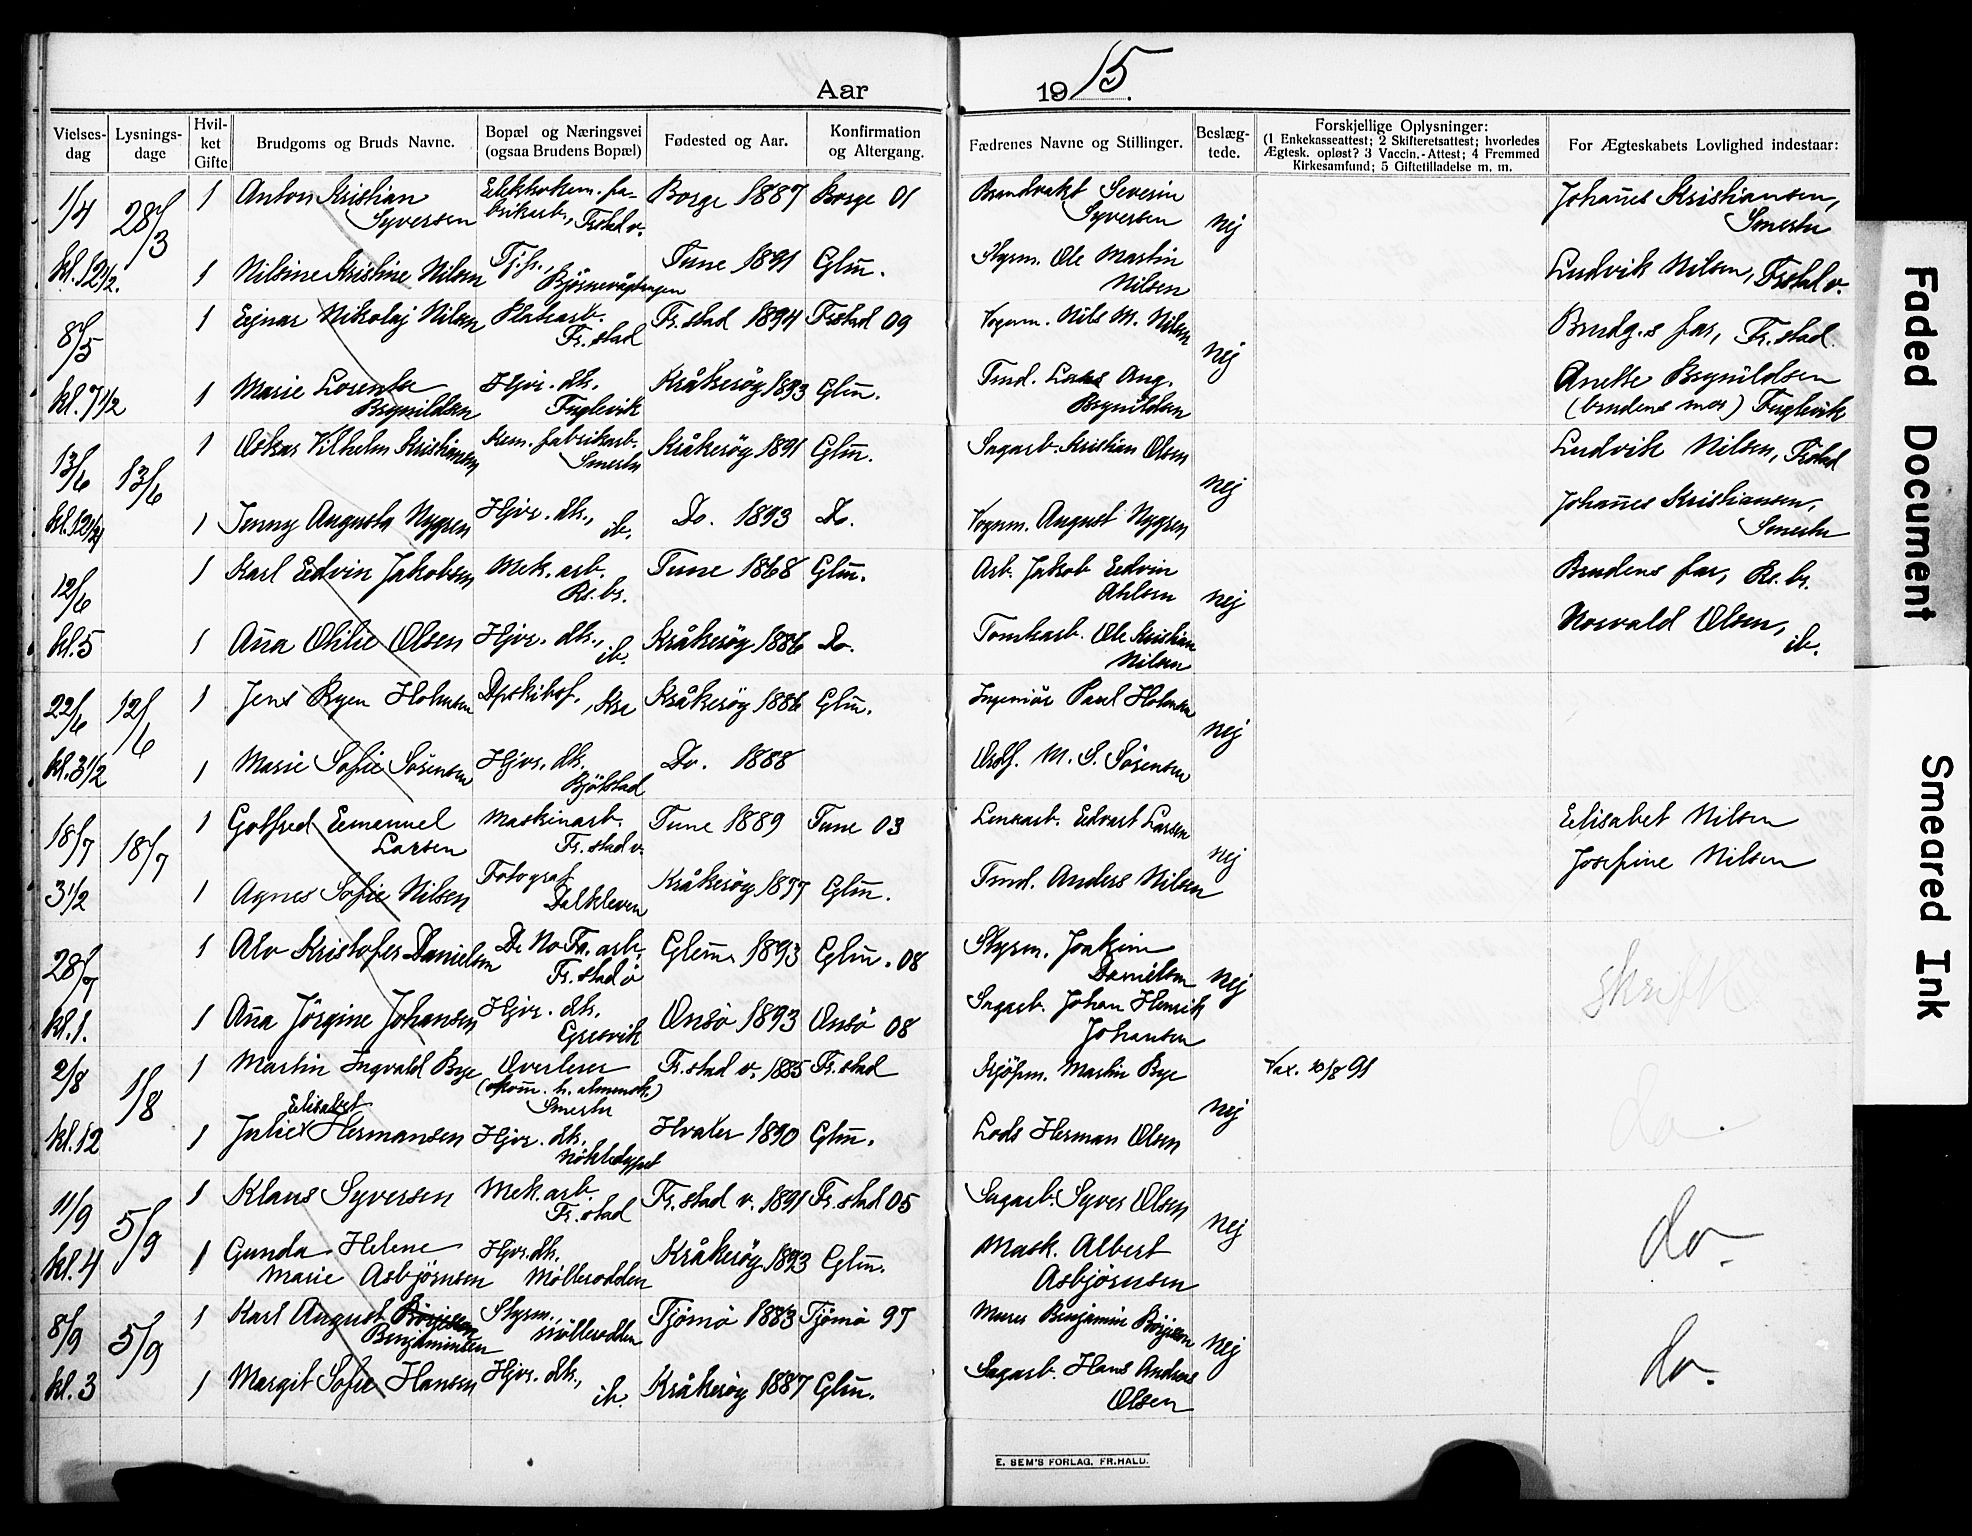 Aar 1915.
Vielses-dag Lysnings-dage Hvil-ket Gifte Brudgoms og Bruds Navne. Bopæl og Næringsvei (ogsaa Brudens Bopæl) Fødested og Aar. Konfirmation og Altergang. Fædrenes Navne og Stillinger. Beslæg-tede. Forskjellige Oplysninger: (1 Enkekasseattest; 2 Skifteretsattest; hvorledes Ægtesk. opløst? 3 Vaccin.-Attest; 4 Fremmed Kirkesamfund; 5 Giftetilladelse m. m. For Ægteskabets Lovlighed indestaar:
1/4 28/3 1 Anton Kristian Syversen Elektrokem. fabrikarb., Frstad v. Borge 1887 Borge 01 Brandvakt Severin Syversen nej Johañes Kristiansen, Smertu
kl. 12 1/2. 1 Nilsine Kristine Nilsen Tj.p., Tune 1891 Glm̄. Styrm. Ole Martin Nilsen Ludvik Nilsen, Frstad v.
8/5 1 Ejnar Nikolaj Nilsen Platearb. Fr.stad Fr.stad 1894 Frstad 09 Vognm. Nils M. Nilsen nej Brudg.s far, Fr.stad.
kl. 7 1/2 1 Marie Lorentse Brynildsen Hjvr. dtr. Fuglevik Kråkerøy 1893 Glm̄. Tmd. Lars Aug. Brynildsen Anette Brynildsen (brudens mor) Fuglevik
13/6 13/6 1 Oskar Vilhelm Kristiansen Kem. fabrikarb. Smertu Kråkerøy 1891 Glm̄. Sagarb. Kristian Olsen nej Ludvik Nilsen, Frstad
kl. 12 1/2 1 Jenny Augusta Nygren Hjvr. dtr., ib. Do. 1893 Do. Vognm. August Nygren Johañes Kristiansen, Smertu
12/6 1 Karl Edvin Jakobsen Mek. arb. Rs.br. Tune 1868 Glm̄. Arb. Jakob Edvin Ahlsen nej Brudens far, Rs. br.
kl. 5 1 Aña Otilie Olsen Hjvr. dtr., ib. Kråkerøy 1886 Do. Tomtearb. Ole Kristian Nilsen Norvald Olsen, ib.
22/6 12/6 1 Jens Ryen Holmsen Dpskibsf., Kra Kråkerøy 1886 Glm̄. Ingeniör Paul Holmsen nej
kl. 3 1/2 1 Marie Sofie Sörensen Hjvr. dtr. Bjölstad Do. 1888 M. S. Sörensen
18/7 18/7 1 Gotfred Emanuel Larsen Maskinarb. Fr.stad v. Tune 1889 Tune 03 Lensearb. Edvart Larsen nej Elisabet Nilsen
3 1/2 1 Agnes Sofie Nilsen Fotograf Dalkleven Kråkerøy 1897 Glm̄. Tmd. Anders Nilsen Josefine Nilsen
28/7 1 Alv Kristofer Danielsen De No Fa. arb. Fr.stad ö Glem̄. 1893 Glm̄. 08 Styrm. Joakim Danielsen nej skriftl.
kl. 1. 1 Aña Jörgine Johansen Hjvr. dtr. Gresvik Onsö 1893 Onsö 08 Sagarb. Johan Henrik Johansen
2/8 1/8 1 Martin Ingvald Bye Overlærer (Kom̄. h. almensk.) Smertu Fr.stad v. 1885 Fr.stad Kjöpm. Martin Bye nej Vax. 10/8 91 do.
kl. 12 1 Julie Elisabet Hermansen Hjvr. dtr. Hvaler 1890 Glm̄. Lods Herman Olsen
11/9 5/9 1 Klaus Syversen Mek. arb. Fr.stad Fr.stad v. 1891 Fr.stad 05 Sagarb. Syver Olsen nej do.
kl. 4 1 Gunda Helene Marie Asbjörnsen Hjvr. dtr. Möllerodden Kråkerøy 1893 Glm̄. Mask. Albert Asbjörnsen
8/9 5/9 1 Karl August Benjaminsen Styrm., Möllerodden Tjömö 1883 Tjömö 97 Murer Benjamin Börjeson nej do.
kl. 3 1 Margit Sofie Hansen Hjvr. dtr., ib. Kråkerøy 1887 Glm̄. Sagarb. Hans Andreas Olsen
E. SEM'S FORLAG, FR.HALD.
Faded Document
Smeared Ink